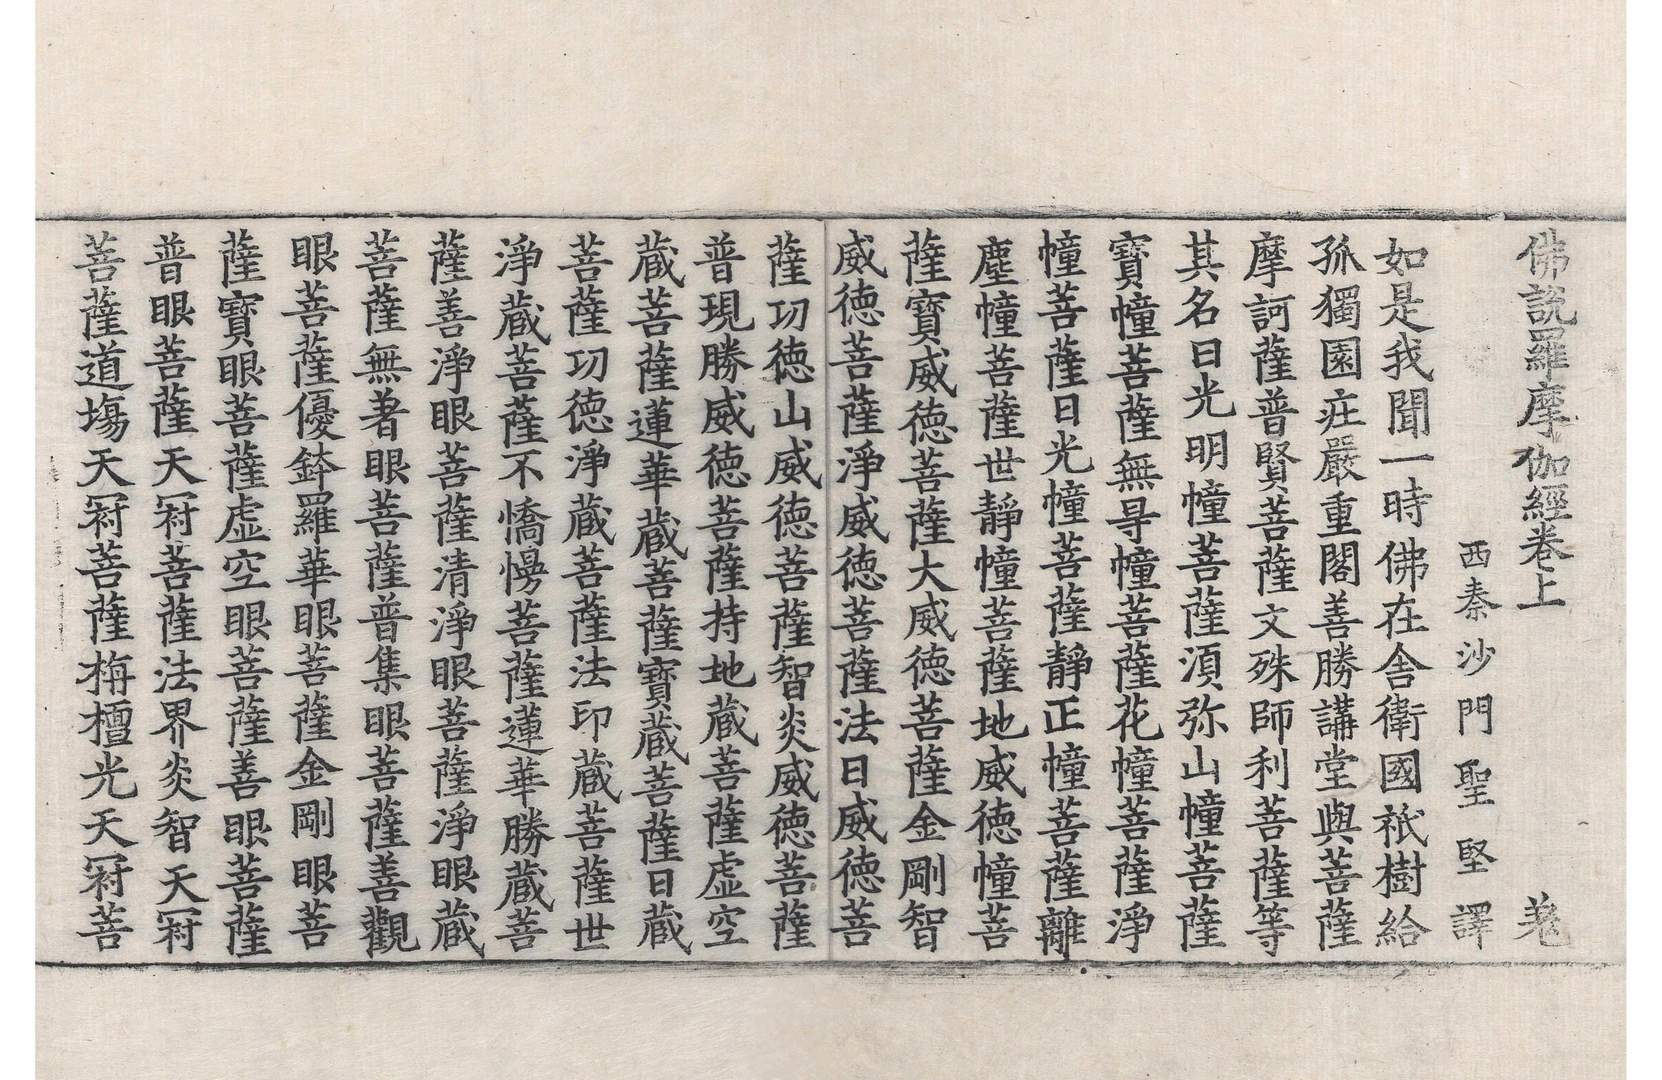 佛説羅摩伽經卷上
西秦沙門聖堅譯
如是我聞一時佛在舍衛國祇樹給
孤獨園庄嚴重閣善勝講堂與菩薩
摩訶薩普賢菩薩文殊師利菩薩等
其名日光明幢菩薩須弥山幢菩薩
寳幢菩薩無㝵幢菩薩花幢菩薩淨
幢菩薩日光幢菩薩靜正幢菩薩離
塵幢菩薩世靜幢菩薩地威德幢菩
薩寳威德菩薩大威德菩薩金剛智
威德菩薩淨威德菩薩法日威德菩
薩功德山威德菩薩智炎威德菩薩
普現勝威德菩薩持地藏菩薩虚空
藏菩薩蓮華藏菩薩寳藏菩薩日藏
菩薩功德淨藏菩薩法印藏菩薩世
淨藏菩薩不憍慢菩薩蓮華勝藏菩
薩善淨眼菩薩清淨眼菩薩淨眼藏
菩薩無著眼菩薩普集眼菩薩善觀
眼菩薩優鉢羅華眼菩薩金剛眼菩
薩寳眼菩薩虚空眼菩薩善眼菩薩
普眼菩薩天冠菩薩法界炎智天冠
菩薩道場天冠菩薩栴檀光天冠菩